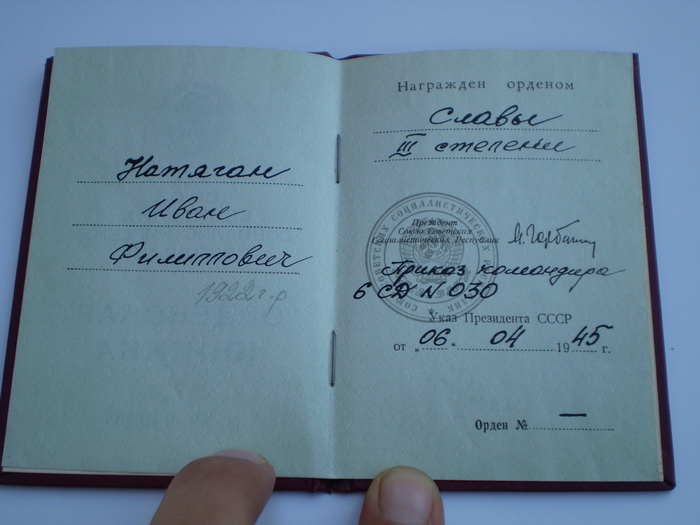 Натяган
Иван
Филиппович
1922 г.р
Награжден орденом
Славы
III степени
Президент
Союза Советских
Социалистических Республик
М. Горбачев
Приказ командира
6 СД N 030
Указ Президента СССР
от „06“ 04 1945 г.
Орден № —